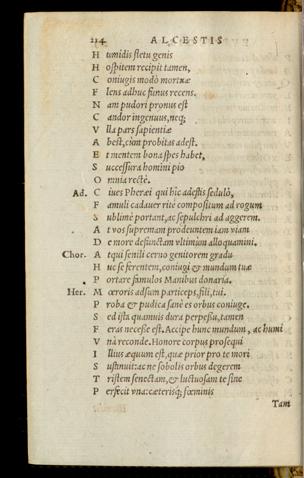 214 ALCESTIS
H umidis fletu genis
H ospitem recipit tamen,
C oniugis modò mortuæ
F lens adhuc funus recens.
N am pudori pronus est
C andor ingenuus, neq;
V lla pars sapientiæ
A best, cùm probitas adest.
E t mentem bona spes habet,
S uccessuro pio
O mnia rectè.
Ad. C iues Pheræi qui hîc adestis sedulò,
F amuli cadauer ritè compositum ad rogum
S ublimè portant, ac sepulchri ad aggerem.
A t vos supremam prodeuntem iam viam
D e more defunctam vltimùm alloquamini.
Chor. A tqui senili cerno genitorem gradu
H uc se ferentem, coniugi & mundum tuæ
P ortare famulos Manibus donaria.
Her. M œroris adsum particeps, fili, tui.
P roba & pudica sanè es orbus coniuge.
S ed ista quamuis dura perpessu, tamen
F eras necesse est. Accipe hunc mundum, ac humi
V nà reconde. Honore corpus prosequi
I llius æquum est, quæ prior pro te mori
S ustinuit: ac ne sobolis orbus degerem
T ristem senectam, & luctuosam te sine
P erfecit vna: cæterisq; fœminis
Tam